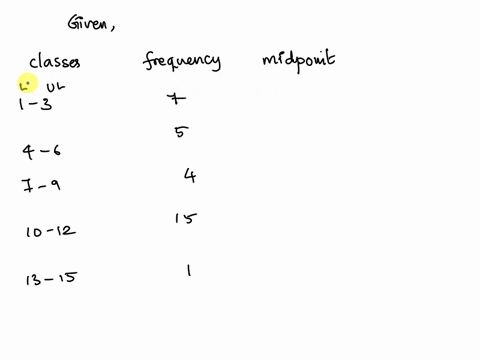 Given,
classes frequency midpoint
UL
1-3 7
5
4-6
7-9 4
10-12 15
13-15 1